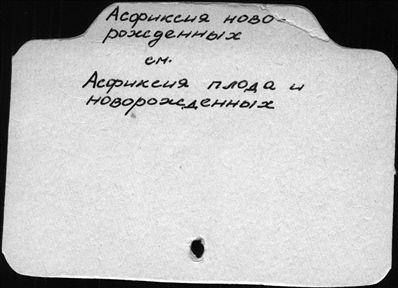 Асфиксия ново-
рожденных
см.
Асфиксия плода и
новорожденных